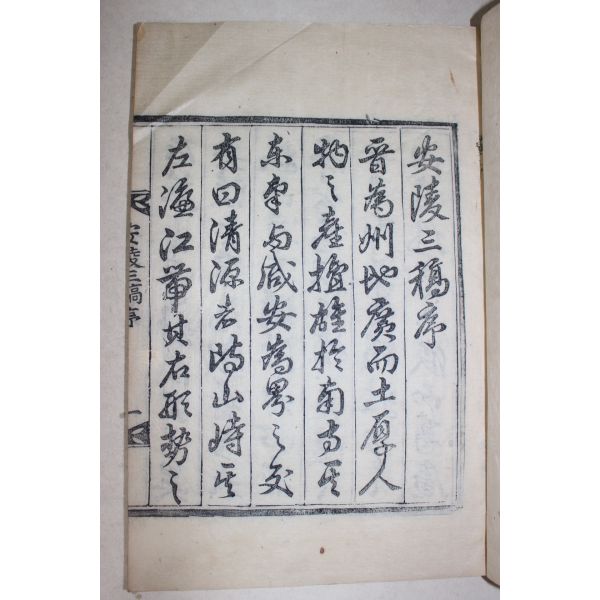 安陵三稿序
晋為州地廣而土厚人
物之産擅雄於南方其
東南與咸安為界之交
有曰清源者防山峙其
左濂江帶其右形勢之
安陵三稿序
一